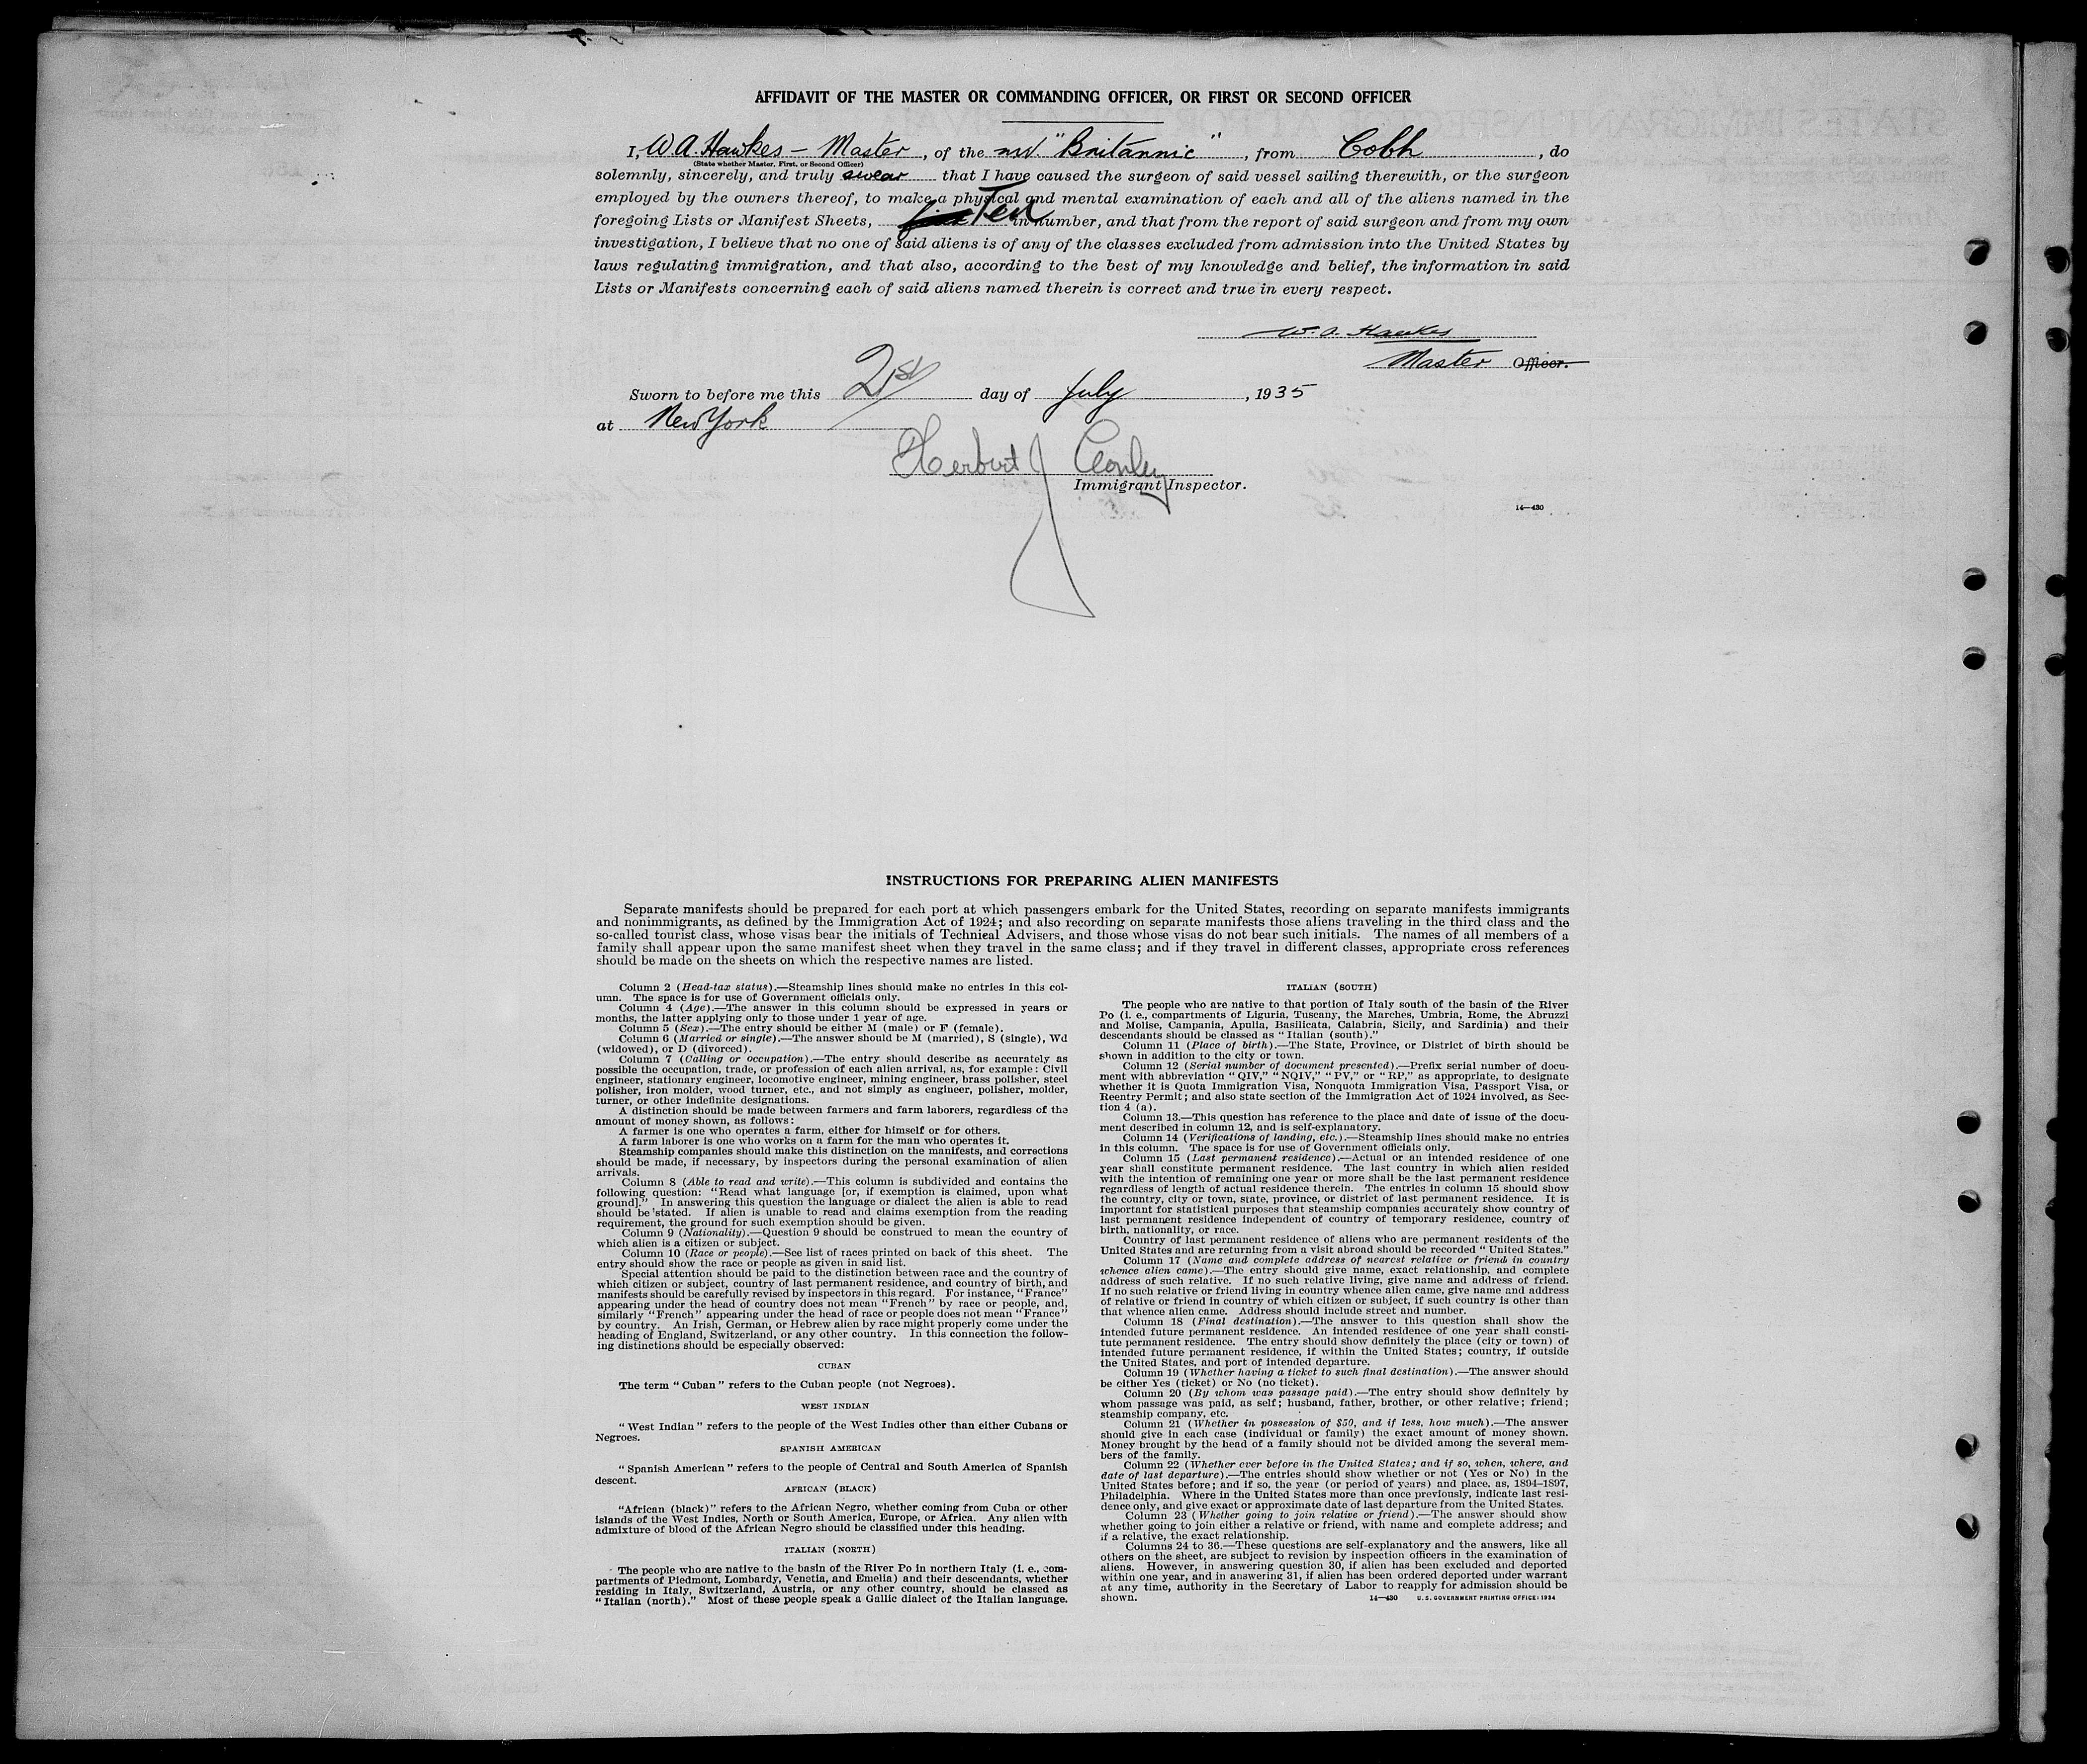 AFFIDAVIT OF THE MASTER OR COMMANDING OFFICER, OR FIRST OR SECOND OFFICER
I, W A. Hawkes – Master, of the mv "Britannic", from Cobh, do
(State whether Master, First, or Second Officer)
solemnly, sincerely, and truly swear that I have caused the surgeon of said vessel sailing therewith, or the surgeon
employed by the owners thereof, to make a physical and mental examination of each and all of the aliens named in the
foregoing Lists or Manifest Sheets, Ten in number, and that from the report of said surgeon and from my own
investigation, I believe that no one of said aliens is of any of the classes excluded from admission into the United States by
laws regulating immigration, and that also, according to the best of my knowledge and belief, the information in said
Lists or Manifests concerning each of said aliens named therein is correct and true in every respect.
W. A. Hawkes
Master Officer.
Sworn to before me this 21st day of July, 1935
at New York
Herbert J Conley
Immigrant Inspector.
14—430
INSTRUCTIONS FOR PREPARING ALIEN MANIFESTS
Separate manifests should be prepared for each port at which passengers embark for the United States, recording on separate manifests immigrants
and nonimmigrants, as defined by the Immigration Act of 1924; and also recording on separate manifests those aliens traveling in the third class and the
so-called tourist class, whose visas bear the initials of Technical Advisers, and those whose visas do not bear such initials. The names of all members of a
family shall appear upon the same manifest sheet when they travel in the same class; and if they travel in different classes, appropriate cross references
should be made on the sheets on which the respective names are listed.
Column 2 (Head-tax status).—Steamship lines should make no entries in this col-
umn. The space is for use of Government officials only.
Column 4 (Age).—The answer in this column should be expressed in years or
months, the latter applying only to those under 1 year of age.
Column 5 (Sex).—The entry should be either M (male) or F (female).
Column 6 (Married or single).—The answer should be M (married), S (single), Wd
(widowed), or D (divorced).
Column 7 (Calling or occupation).—The entry should describe as accurately as
possible the occupation, trade, or profession of each alien arrival, as, for example: Civil
engineer, stationary engineer, locomotive engineer, mining engineer, brass polisher, steel
polisher, iron molder, wood turner, etc., and not simply as engineer, polisher, molder,
turner, or other indefinite designations.
A distinction should be made between farmers and farm laborers, regardless of the
amount of money shown, as follows:
A farmer is one who operates a farm, either for himself or for others.
A farm laborer is one who works on a farm for the man who operates it.
Steamship companies should make this distinction on the manifests, and corrections
should be made, if necessary, by inspectors during the personal examination of alien
arrivals.
Column 8 (Able to read and write).—This column is subdivided and contains the
following question: "Read what language [or, if exemption is claimed, upon what
ground]." In answering this question the language or dialect the alien is able to read
should be stated. If alien is unable to read and claims exemption from the reading
requirement, the ground for such exemption should be given.
Column 9 (Nationality).—Question 9 should be construed to mean the country of
which alien is a citizen or subject.
Column 10 (Race or people).—See list of races printed on back of this sheet. The
entry should show the race or people as given in said list.
Special attention should be paid to the distinction between race and the country of
which citizen or subject, country of last permanent residence, and country of birth, and
manifests should be carefully revised by inspectors in this regard. For instance, "France"
appearing under the head of country does not mean "French" by race or people, and,
similarly "French" appearing under the head of race or people does not mean "France"
by country. An Irish, German, or Hebrew alien by race might properly come under the
heading of England, Switzerland, or any other country. In this connection the follow-
ing distinctions should be especially observed:
CUBAN
The term "Cuban" refers to the Cuban people (not Negroes).
WEST INDIAN
"West Indian" refers to the people of the West Indies other than either Cubans or
Negroes.
SPANISH AMERICAN
"Spanish American" refers to the people of Central and South America of Spanish
descent.
AFRICAN (BLACK)
"African (black)" refers to the African Negro, whether coming from Cuba or other
islands of the West Indies, North or South America, Europe, or Africa. Any alien with
admixture of blood of the African Negro should be classified under this heading.
ITALIAN (NORTH)
The people who are native to the basin of the River Po in northern Italy (i. e., com-
partments of Piedmont, Lombardy, Venetia, and Emelia) and their descendants, whether
residing in Italy, Switzerland, Austria, or any other country, should be classed as
"Italian (north)." Most of these people speak a Gallic dialect of the Italian language.
ITALIAN (SOUTH)
The people who are native to that portion of Italy south of the basin of the River
Po (i. e., compartments of Liguria, Tuscany, the Marches, Umbria, Rome, the Abruzzi
and Molise, Campania, Apulia, Basilicata, Calabria, Sicily, and Sardinia) and their
descendants should be classed as "Italian (south)."
Column 11 (Place of birth).—The State, Province, or District of birth should be
shown in addition to the city or town.
Column 12 (Serial number of document presented).—Prefix serial number of docu-
ment with abbreviation "QIV," "NQIV," "PV," or "RP," as appropriate, to designate
whether it is Quota Immigration Visa, Nonquota Immigration Visa, Passport Visa, or
Reentry Permit; and also state section of the Immigration Act of 1924 involved, as Sec-
tion 4 (a).
Column 13.—This question has reference to the place and date of issue of the docu-
ment described in column 12, and is self-explanatory.
Column 14 (Verifications of landing, etc.).—Steamship lines should make no entries
in this column. The space is for use of Government officials only.
Column 15 (Last permanent residence).—Actual or an intended residence of one
year shall constitute permanent residence. The last country in which alien resided
with the intention of remaining one year or more shall be the last permanent residence
regardless of length of actual residence therein. The entries in column 15 should show
the country, city or town, state, province, or district of last permanent residence. It is
important for statistical purposes that steamship companies accurately show country of
last permanent residence independent of country of temporary residence, country of
birth, nationality, or race.
Country of last permanent residence of aliens who are permanent residents of the
United States and are returning from a visit abroad should be recorded "United States."
Column 17 (Name and complete address of nearest relative or friend in country
whence alien came).—The entry should give name, exact relationship, and complete
address of such relative. If no such relative living, give name and address of friend.
If no such relative or friend living in country whence alien came, give name and address
of relative or friend in country of which citizen or subject, if such country is other than
that whence alien came. Address should include street and number.
Column 18 (Final destination).—The answer to this question shall show the
intended future permanent residence. An intended residence of one year shall consti-
tute permanent residence. The entry should show definitely the place (city or town) of
intended future permanent residence, if within the United States; country, if outside
the United States, and port of intended departure.
Column 19 (Whether having a ticket to such final destination).—The answer should
be either Yes (ticket) or No (no ticket).
Column 20 (By whom was passage paid).—The entry should show definitely by
whom passage was paid, as self; husband, father, brother, or other relative; friend;
steamship company, etc.
Column 21 (Whether in possession of $50, and if less, how much).—The answer
should give in each case (individual or family) the exact amount of money shown.
Money brought by the head of a family should not be divided among the several mem-
bers of the family.
Column 22 (Whether ever before in the United States; and if so, when, where, and
date of last departure).—The entries should show whether or not (Yes or No) in the
United States before; and if so, the year (or period of years) and place, as, 1894–1897,
Philadelphia. Where in the United States more than once previously, indicate last resi-
dence only, and give exact or approximate date of last departure from the United States.
Column 23 (Whether going to join relative or friend).—The answer should show
whether going to join either a relative or friend, with name and complete address; and
if a relative, the exact relationship.
Columns 24 to 36.—These questions are self-explanatory and the answers, like all
others on the sheet, are subject to revision by inspection officers in the examination of
aliens. However, in answering question 30, if alien has been excluded and deported
within one year, and in answering 31, if alien has been ordered deported under warrant
at any time, authority in the Secretary of Labor to reapply for admission should be
shown.
14—430 U. S. GOVERNMENT PRINTING OFFICE: 1934